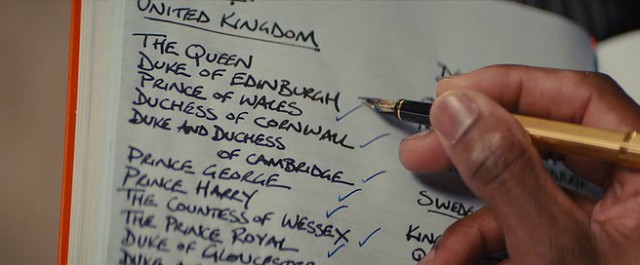 UNITED KINGDOM
THE QUEEN
DUKE OF EDINBURGH
PRINCE OF WALES
DUCHESS OF CORNWALL
DUKE AND DUCHESS
OF CAMBRIDGE
PRINCE GEORGE
PRINCE HARRY
THE COUNTESS OF WESSEX
THE PRINCE ROYAL
DUKE OF GLOUCESTER
DUKE
SWEDE
KING